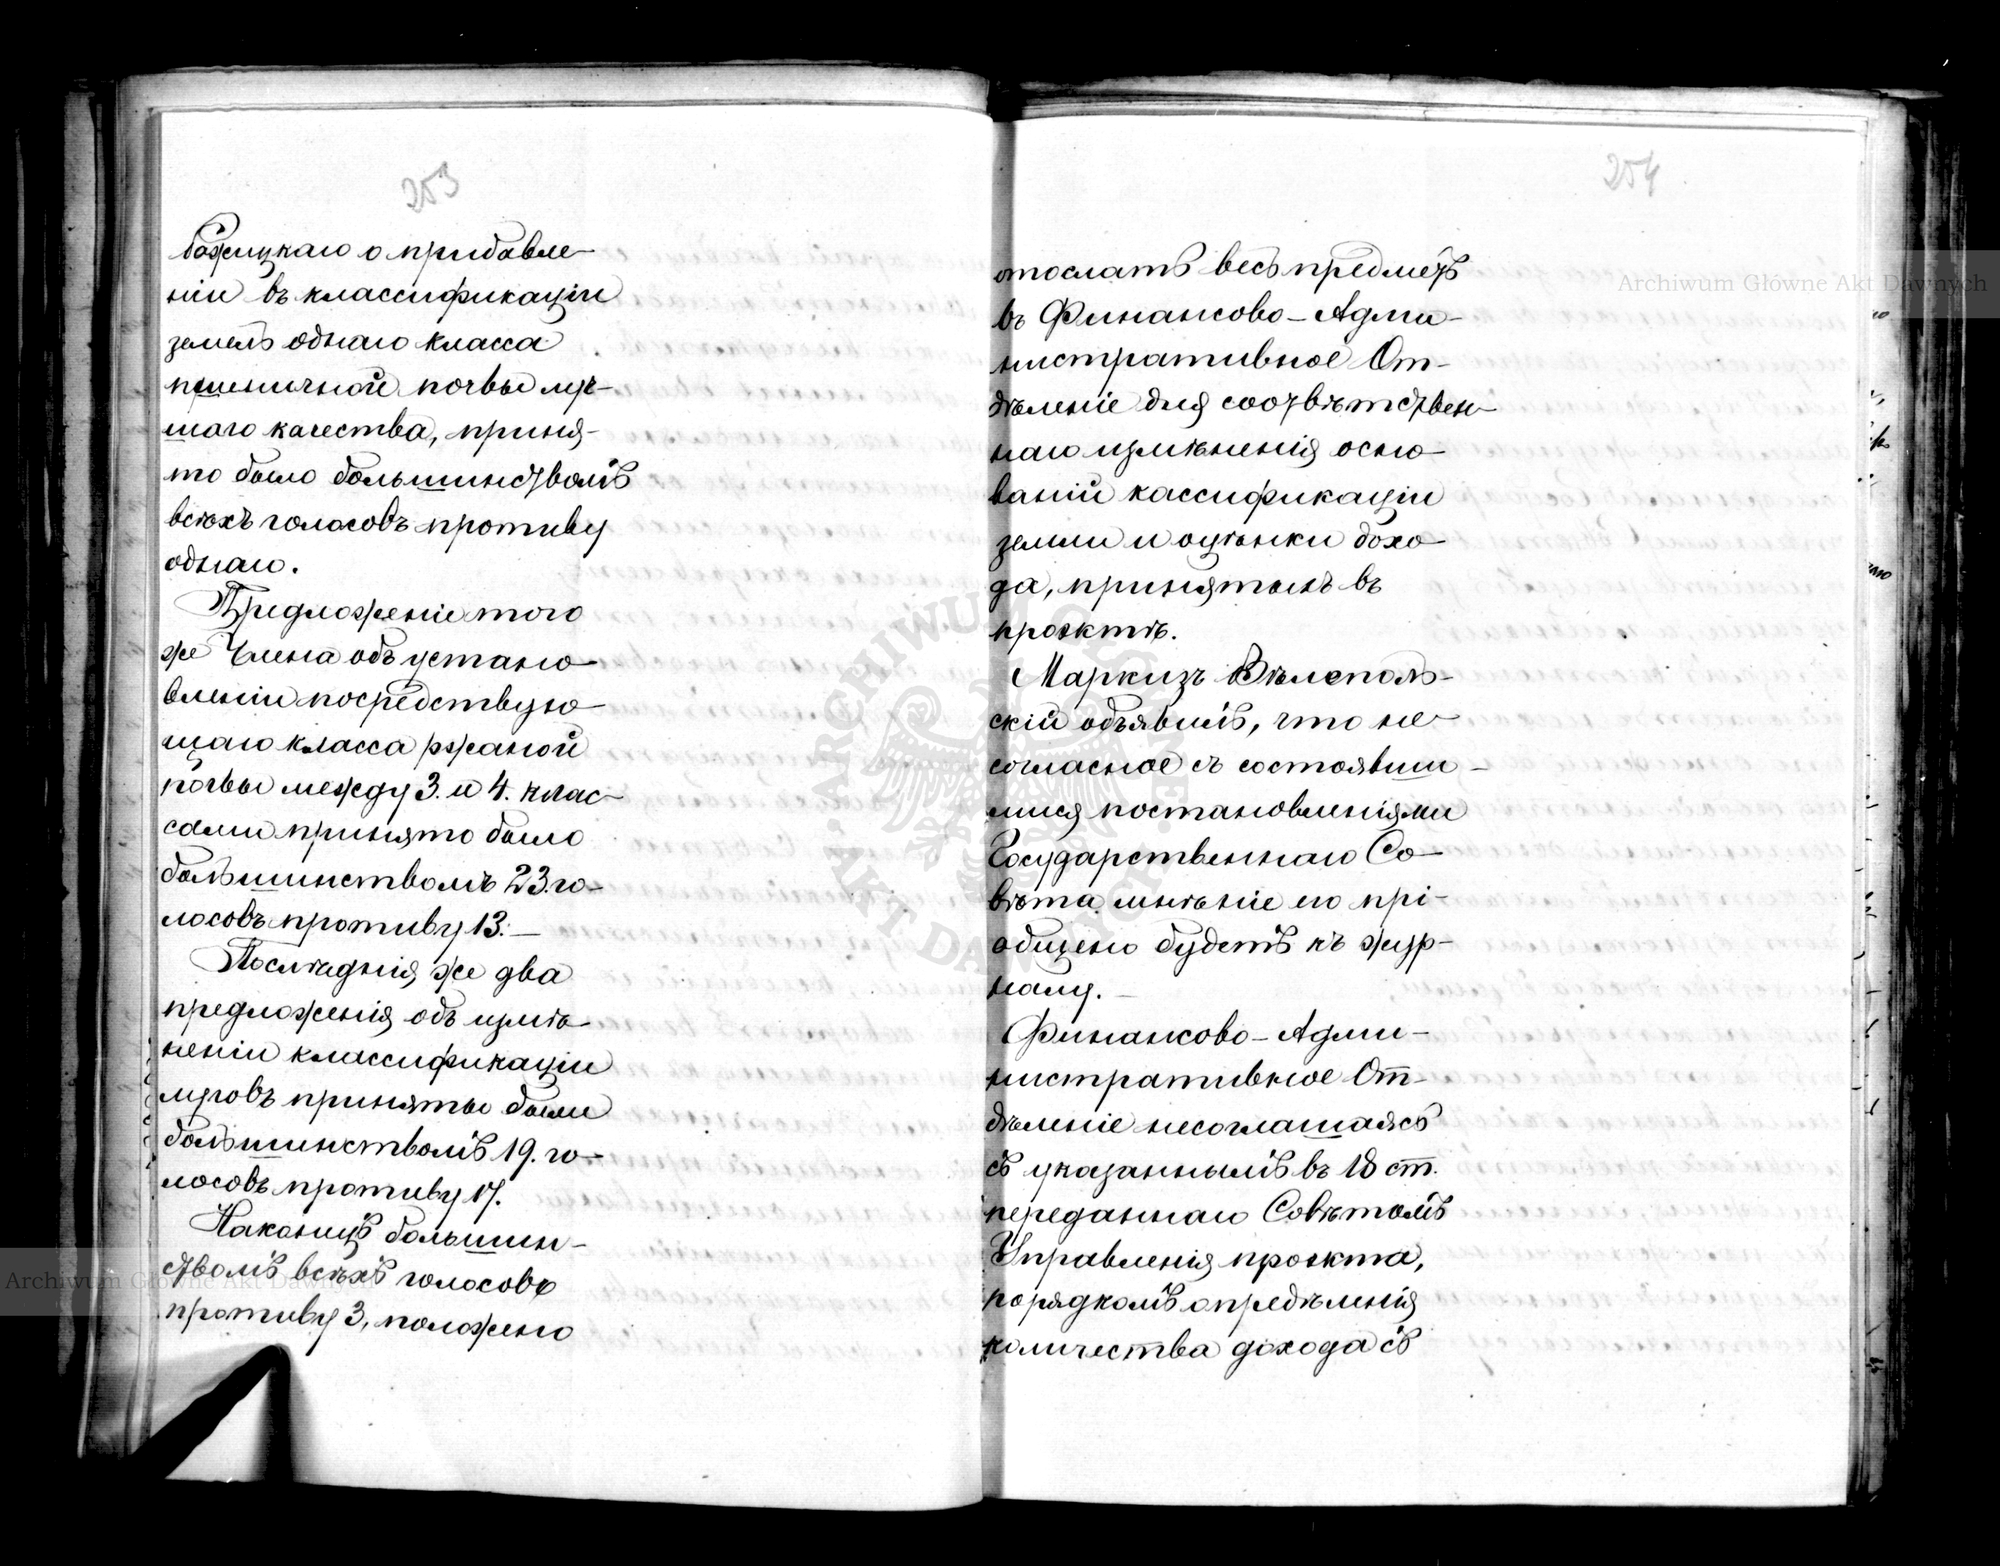 253
о прибавле-
ніи въ классификаціи
земель однаго класса
пшеничной почвы луч-
шаго качества, приня-
то было большинствомъ
всѣхъ голосовъ противу
однаго.
Предложеніе того
же Члена объ устано-
вленіи посредствую-
щаго класса ржаной
почвы между 3. и 4. клас-
сами принято было
большинствомъ 23. го-
лосовъ противу 13. —
Послѣднія же два
предложенія объ измѣ-
неніи классификаціи
луговъ приняты были
большинствомъ 19. го-
лосовъ противу 17.
Наконецъ большин-
ствомъ всѣхъ голосовъ
противу 3, положено
254
отослать весь предметъ
въ Финансово-Адми-
нистративное От-
дѣленіе для соотвѣтствен-
наго измѣненія осно-
ваній кассификаціи
земли и оцѣнки дохо-
да, принятыхъ въ
проэктѣ.
Маркизъ Вѣлеполь-
скій объявилъ, что не-
согласное съ состоявши-
мися постановленіями
Государственнаго Со-
вѣта мнѣніе его прі-
общено будетъ къ жур-
налу. —
Финансово-Адми-
нистративное От-
дѣленіе несоглашаясь
съ указаннымъ въ 18 ст.
переданнаго Совѣтомъ
Управленія проэкта,
порядкомъ опредѣленія
количества дохода съ
Archiwum Główne Akt Dawnych
Archiwum Główne Akt Dawnych
ARCHIWUM GŁÓWNE AKT DAWNYCH